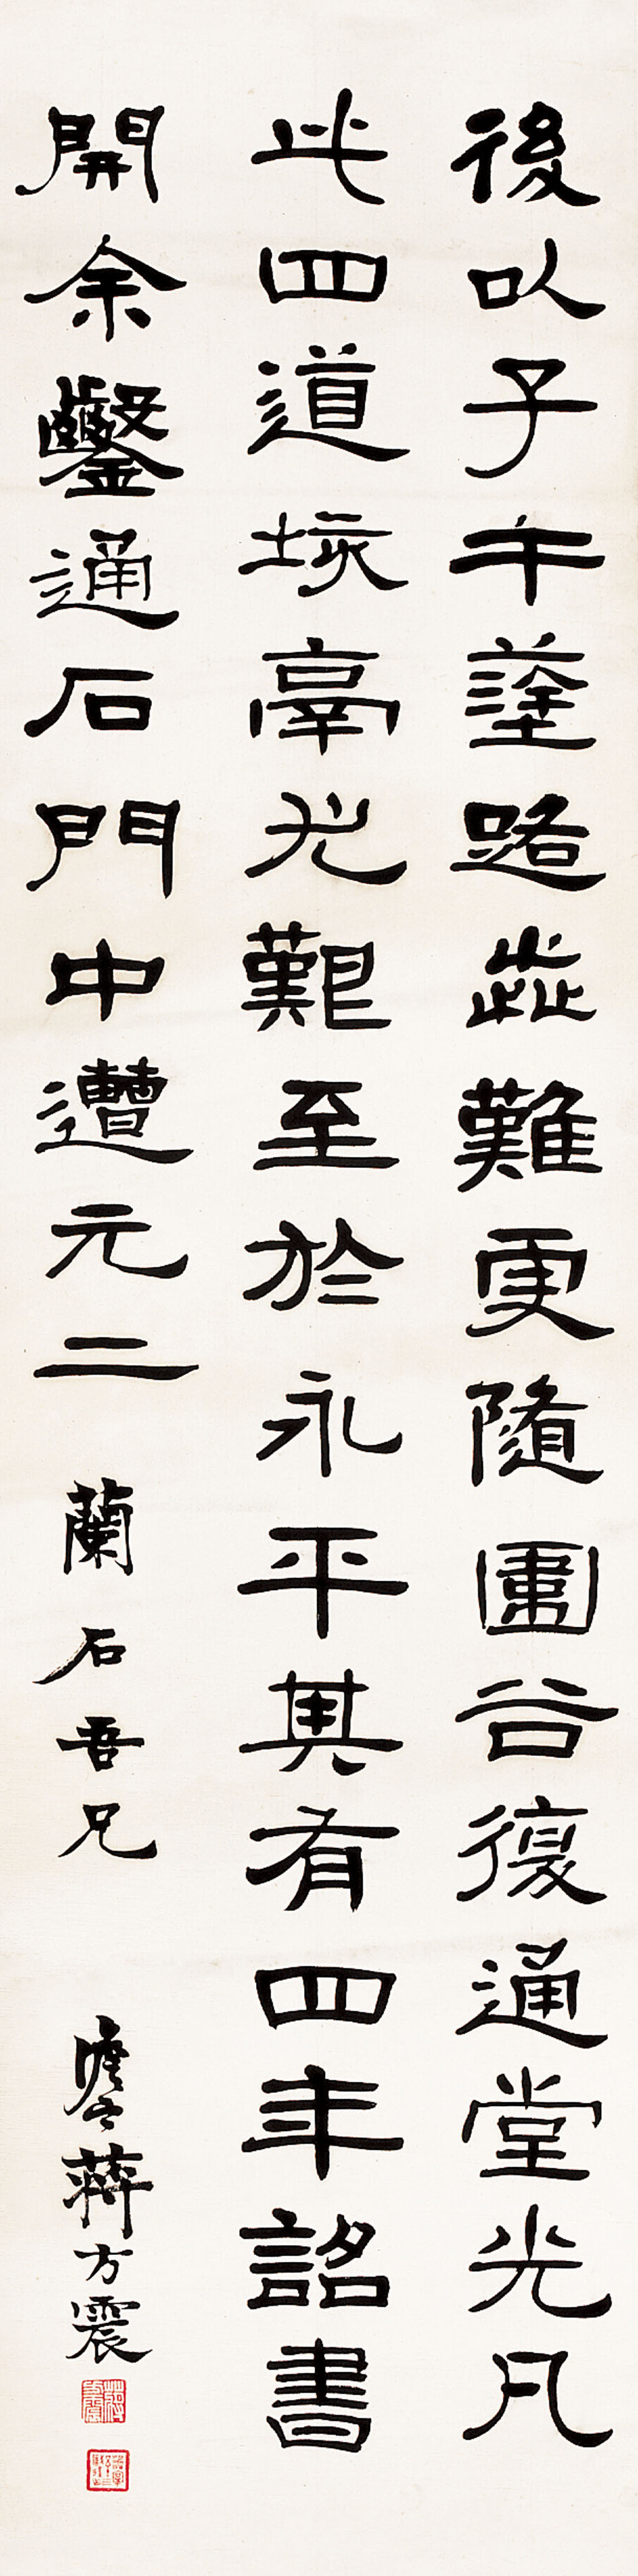 後以子午蓥路歮難更隨圍谷復通堂光凡
此四道垓鬲尤艱至於永平其有四年詔書
開余鑿通石門中遭元二
蘭石吾兄
蔣方震